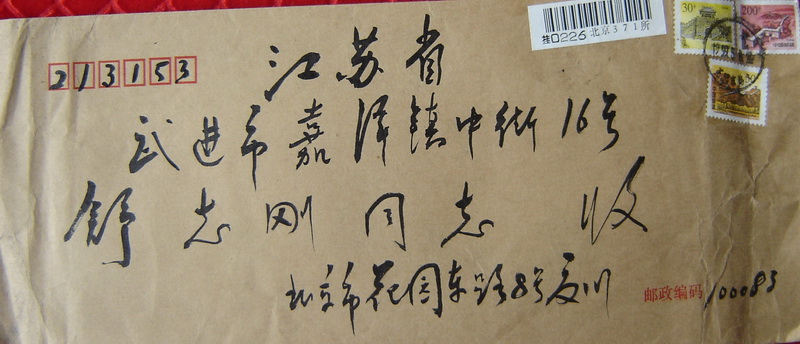 30分
200分
挂0226 北京371所
50分
213153
江苏省
武进市嘉泽镇中街16号
舒志刚同志 收
北京市花园东路8号夏川
邮政编码 100083